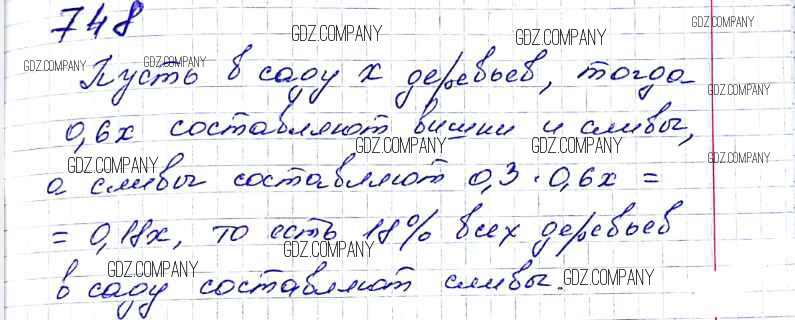 748
GDZ.COMPANY GDZ.COMPANY GDZ.COMPANY
GDZ.COMPANY GDZ.COMPANY
Пусть в саду x деревьев, тогда
GDZ.COMPANY
0,6x составляют вишни и сливы,
GDZ.COMPANY GDZ.COMPANY GDZ.COMPANY GDZ.COMPANY
а сливы составляют 0,3 · 0,6x =
= 0,18x, то есть 18% всех деревьев
GDZ.COMPANY
GDZ.COMPANY GDZ.COMPANY
в саду составляют сливы.